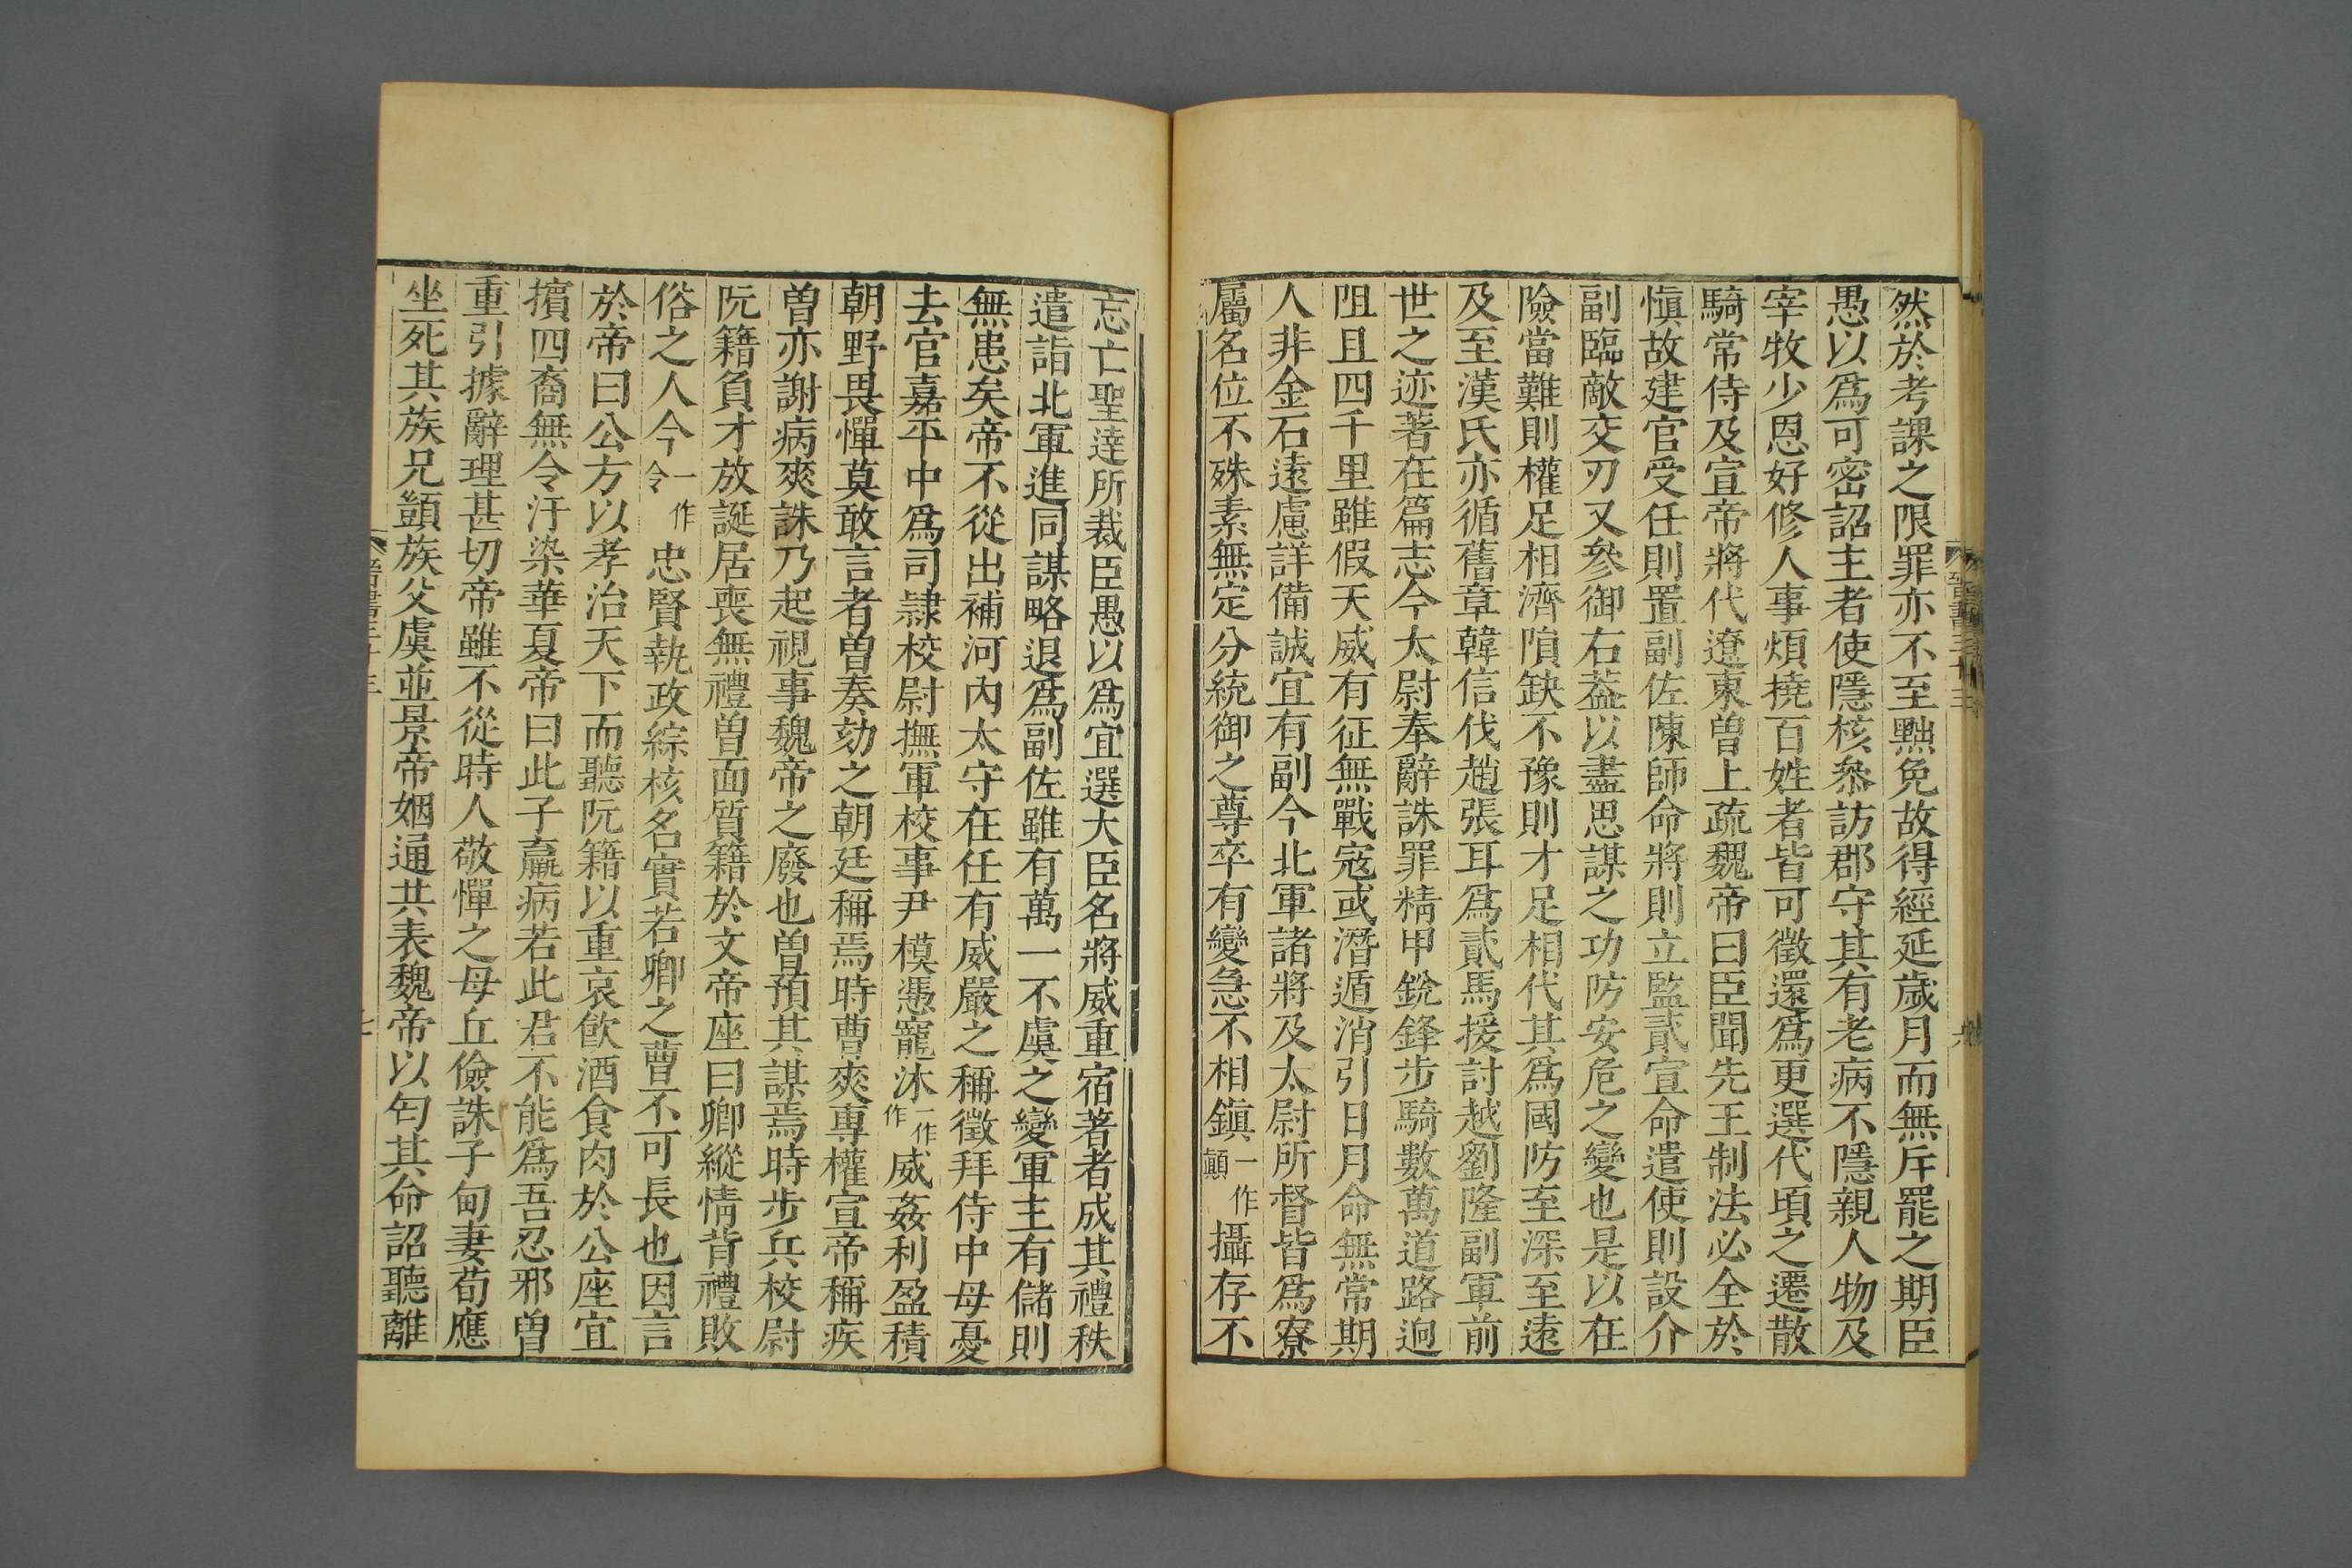 然於考課之限罪亦不至黜免故得經延歲月而無斥罷之期臣
愚以爲可密詔主者使隱核叅訪郡守其有老病不隱親人物及
宰牧少恩好修人事煩撓百姓者皆可徵還爲更選代頃之遷散
騎常侍及宣帝將代遼東曽上疏魏帝曰臣聞先王制法必全於
愼故建官受任則置副佐陳師命將則立監貳宣命遣使則設介
副臨敵交刃又參御右葢以盡思謀之功防安危之變也是以在
險當難則權足相濟隕缺不豫則才足相代其爲國防至深至遠
及至漢氏亦循舊章韓信伐趙張耳爲貳馬援討越劉隆副軍前
世之迹著在篇志今太尉奉辭誅罪精甲銳鋒步騎數萬道路逈
阻且四千里雖假天威有征無戰寇或潛遁消引日月命無常期
人非金石遠慮詳備誠宜有副今北軍諸將及太尉所督皆爲寮
屬名位不殊素無定分統御之尊卒有變急不相鎭一作顚攝存不
忘亡聖達所裁臣愚以爲宜選大臣名將威重宿著者成其禮秩
遣詣北軍進同謀略退爲副佐雖有萬一不虞之變軍主有儲則
無患矣帝不從出補河內太守在任有威嚴之稱徵拜侍中母憂
去官嘉平中爲司隸校尉撫軍校事尹模憑寵沐一作作威姦利盈積
朝野畏憚莫敢言者曽奏劾之朝廷稱焉時曹爽專權宣帝稱疾
曽亦謝病爽誅乃起視事魏帝之廢也曽預其謀焉時步兵校尉
阮籍負才放誕居喪無禮曽面質籍於文帝座曰卿縱情背禮敗
俗之人今一作令忠賢執政綜核名實若卿之曹不可長也因言
於帝曰公方以孝治天下而聽阮籍以重哀飮酒食肉於公座宜
擯四裔無令汙染華夏帝曰此子羸病若此君不能爲吾忍邪曽
重引據辭理甚切帝雖不從時人敬憚之毋丘儉誅子甸妻荀應
坐死其族兄顗族父虞並景帝姻通共表魏帝以匄其命詔聽離